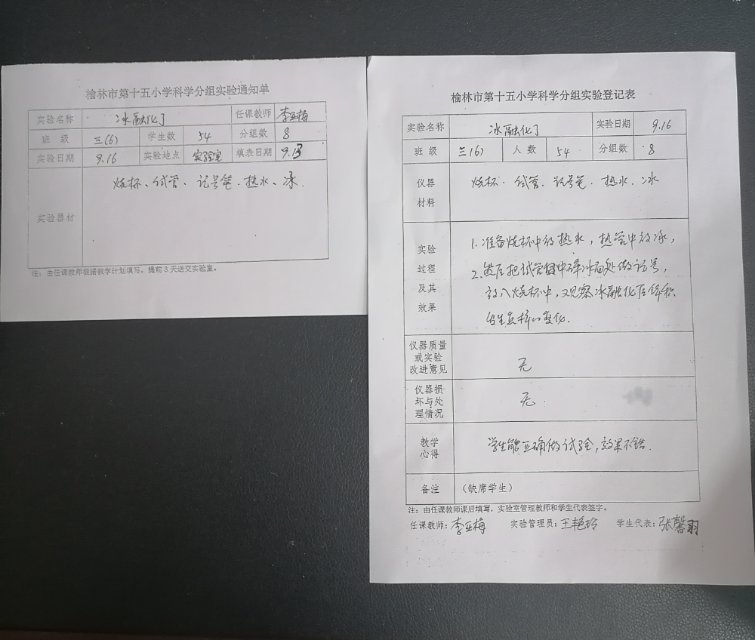 榆林市第十五小学科学分组实验通知单
实验名称 冰融化了 任课教师 李亚梅
班级 三(6) 学生数 54 分组数 8
实验日期 9.16 实验地点 实验室 填表日期 9.13
实验器材 烧杯、试管、记号笔、热水、冰
注：由任课教师根据教学计划填写，提前3天送交实验室。
榆林市第十五小学科学分组实验登记表
实验名称 冰融化了 实验日期 9.16
班级 三(6) 人数 54 分组数 8
仪器材料 烧杯、试管、记号笔、热水、冰
实验过程及其效果
1.准备烧杯中放热水，热管中放冰，
2.然后把试管中冰面处做记号，
放入烧杯中，观察冰融化后体积
发生怎样的变化.
仪器质量或实验改进意见 无
仪器损坏与处理情况 无
教学心得 学生能正确做试验，效果不错.
备注 (缺席学生)
注：由任课教师课后填写，实验室管理教师和学生代表签字。
任课教师：李亚梅 实验管理员：王艳玲 学生代表：张馨羽